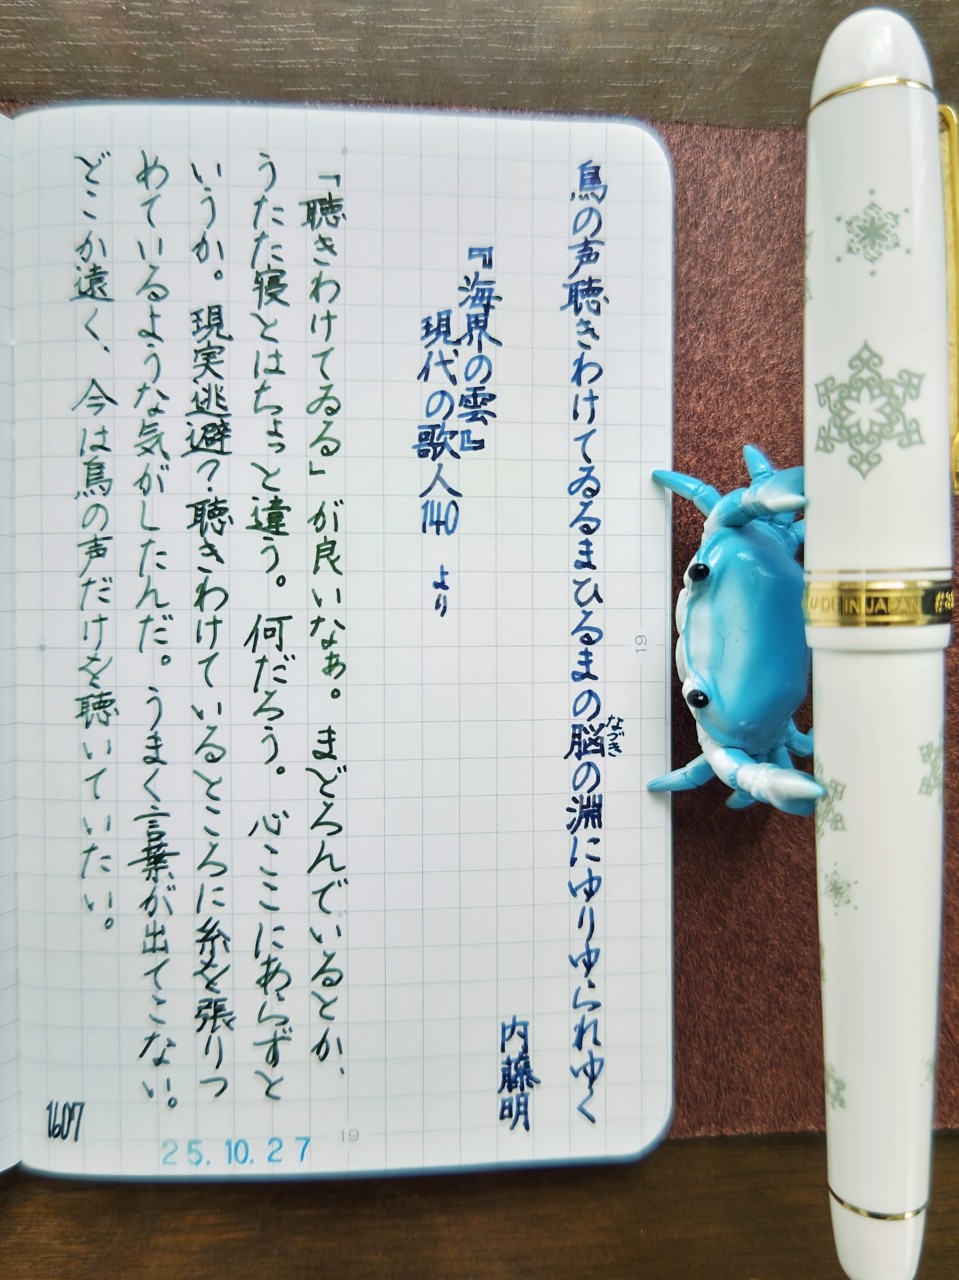 鳥の声聴きわけてゐるまひるまの脳の淵にゆりゆられゆく
なづき
内藤明
『海界の雲』
現代の歌人140 より
「聴きわけてゐる」が良いなぁ。まどろんでいるとか、
うたた寝とはちょっと違う。何だろう。心ここにあらずと
いうか。現実逃避?聴きわけているところに糸を張りつ
めているような気がしたんだ。うまく言葉が出てこない。
どこか遠く、今は鳥の声だけを聴いていたい。
1607
25.10.27
19
19
MADE IN JAPAN